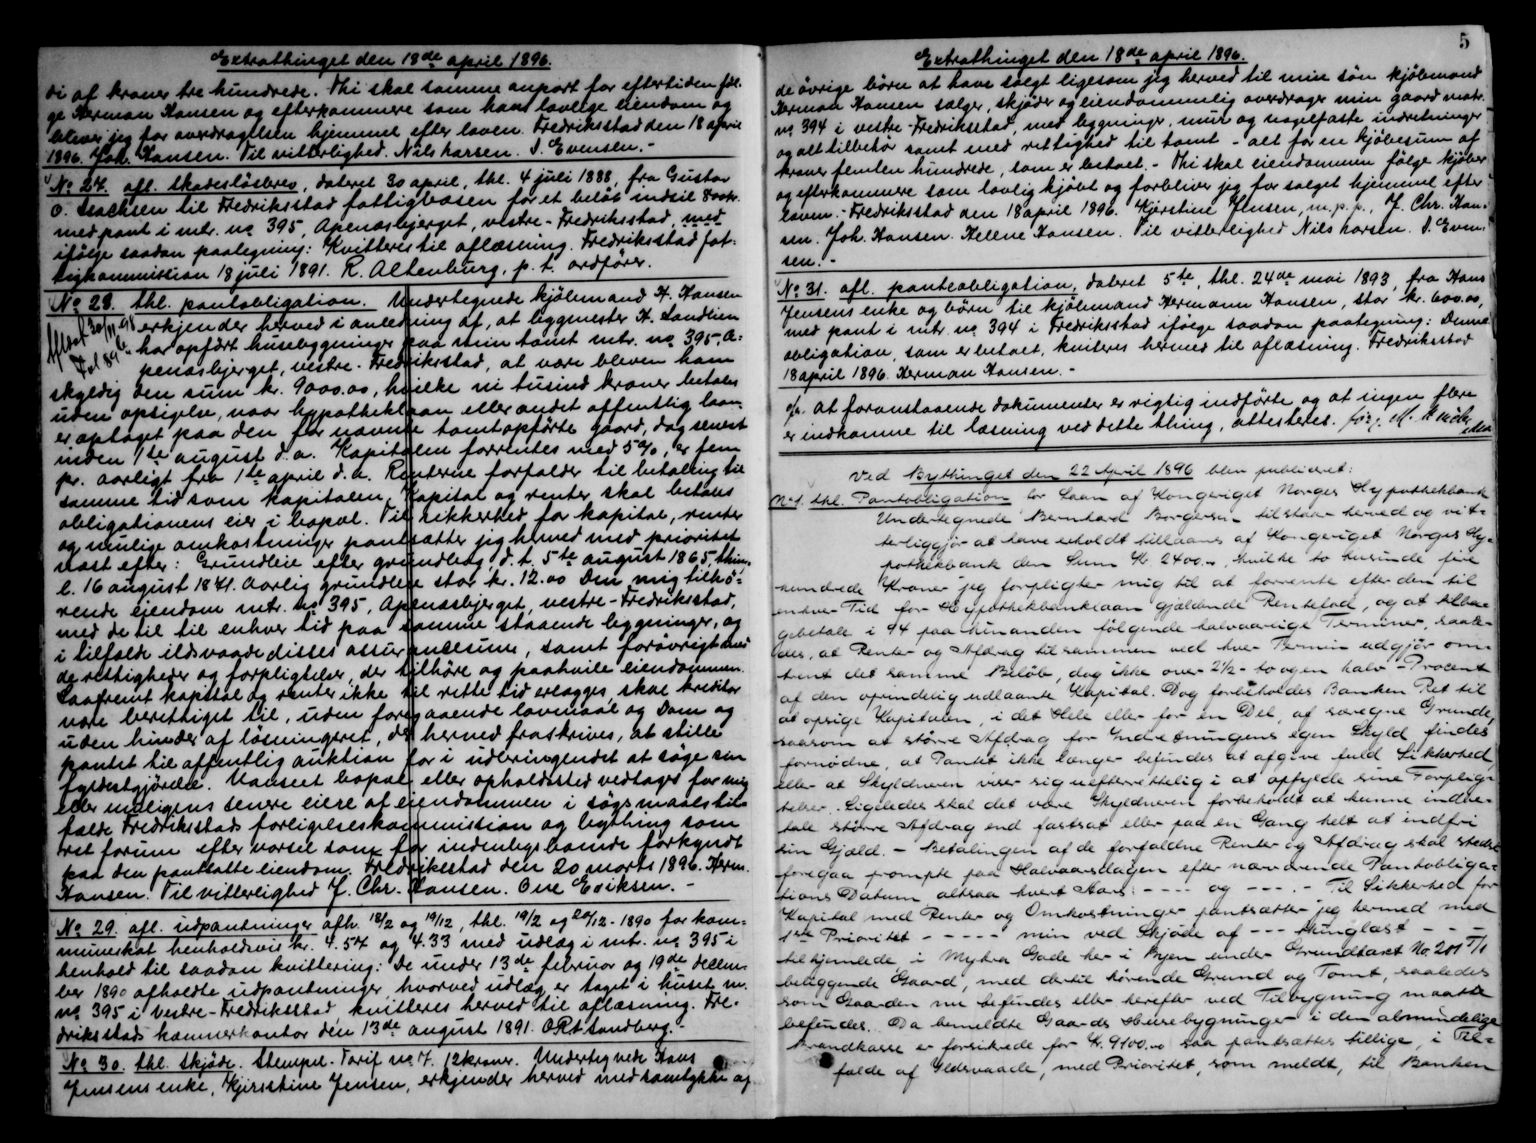 Extrathinget den 18de april 1896.
di af kroner tre hundrede. Thi skal samme anport for eftertiden föl-
ge Herman Hansen og efterkommere som hans lovlige eiendom og
bliver jeg for overdragelsen hjemmel efter loven. Fredriksstad den 18 april
1896. Joh. Hansen. Til vitterlighed. Nils Larsen. S. Evensen. -
No 27. afl. skadeslösbrev, dateret 30 april, thl. 4 juli 1888, fra Gustav
O. Isachsen til Fredriksstad fattigvæsen for et belöb indtil 800 kr.
med pant i mtr. no 395, Apenæsbjerget, vestre-Fredriksstad, med
ifölge saadan paategning: Kvitteres til aflæsning. Fredriksstad fat-
tigkommission 18 juli 1891. R. Altenburg, p. t. ordförer.
No 28. thl. pantobligation. Undertegnede kjöbmand H. Hansen
Aflæst 30/11-98
Fol 89 b.
erkjender herved i anledning af, at bygmester H. Sandlien
har opfört husebygninger paa min tomt mtr. no 395 A-
penæsbjerget, vestre-Fredriksstad, at være bleven ham
skyldig den sum kr. 9000.00, hvilke ni tusind kroner betales
uden opsigelse, naar hypotheklaan eller andet offentlig laan
er optaget paa den for nævnte tomt opförte gaard, dog senest
inden 1ste august d. a. Kapitalen forrentes med 5 %, er fem
pr. aarligt fra 1ste april d. a. Renterne forfalder til betaling til
samme tid som kapitalen. Kapital og renter skal betales
obligationens eier i bopæl. Til sikkerhed for kapital, renter
og mulige omkostninger pantsætter jeg herved med prioritet
næst efter: Grundleie efter grundbrev, d. t. 5te august 1865, thin-
l. 16 august 1871. Aarlig grundleie stor kr. 12.00 Den mig tilhö-
rende eiendom mtr. no 395, Apenæsbjerget, vestre-Fredriksstad,
med de til til enhver tid paa samme staaende bygninger, og
i tilfælde ildsvaade disses assurancesum, samt forövrigt med
de rettigheder og forpligtelser, der tilhöre og paahvile eiendommen.
Saafremt kapital og renter ikke til rette tid erlægges, skal kreditor
være berettiget til, uden foregaaende lovmaal og Dom og
uden hinder af lösningsret, der herved fraskrives, at stille
pantet til offentlig auktion for i udbringendet at söge sin
fyldestgjörelse. Uanseet bopæl eller opholdssted vedtages for mig
eller muligens senere eiere af eiendommen i sögsmaalstil-
fælde Fredriksstads forligelseskommission og bything som
ret forum efter varsel som for indenbysboende forkyndt
paa den pantsatte eiendom. Fredriksstad den 20 marts 1896. Herm.
Hansen. Til vitterlighed J. Chr. Hansen. Ove Eriksen. -
No 29. afl. udpantninger afh. 13/2 og 19/12, thl. 19/2 og 20/12-1890 for kom-
muneskat henholdsvis kr. 4.54 og 4.33 med udlæg i mtr. no 395 i
henhold til saadan kvittering: De under 13de februar og 19de decem-
ber 1890 afholdte udpantninger hvorved udlæg er taget i huset m.
no 395 i vestre-Fredriksstad, kvitteres herved til aflæsning. Fre-
driksstads kæmnerkontor den 13de august 1891. O Rt Sandberg. -
No 30. thl. skjöde. Stempel-Tarif no 7. 12 kroner. Undertegnede Hans
Jensens enke, Kjerstine Jensen, erkjender herved med samtykke af
5
Extrathinget den 18de april 1896.
de övrige börn at have solgt ligesom jeg herved til min sön kjöbmand
Herman Hansen sælger, skjöder og eiendommelig overdrager min gaard matr.
no 394 i vestre-Fredriksstad, med bygninger, mur og nagelfaste indretninger
og alt tilbehör samt med rettighed til tomt - alt for en kjöbesum af
kroner femten hundrede, som er betalt. - Thi skal eiendommen fölge kjöber
og efterkommere som lovlig kjöbt og forbliver jeg for salget hjemmel efter
loven. - Fredriksstad den 18 april 1896. Kjerstine Jensen, m. p. p., J. Chr. Han-
sen. Joh. Hansen. Helene Hansen. Til vitterlighed Nils Larsen. S. Even-
sen. -
No 31. afl. panteobligation, dateret 5te, thl. 24de mai 1893, fra Hans
Jensens enke og börn til kjöbmand Hermann Hansen, stor kr. 600.00,
med pant i mtr. no 394 i Fredriksstad ifölge saadan paategning: Denne
obligation, som er betalt, kviteres hermed til aflæsning. Fredriksstad
18 april 1896. Herman Hansen. -
At foranstaaende dokumenter er rigtig indförte og at ingen flere
er indkomne til læsning ved dette thing, attesteres.
Ved Bythinget den 22 April 1896 blev publiceret:
No 1. thl. Pantobligation for Laan af Kongeriget Norges Hypothekbank
Undertegnede Bernhard Borgersen tilstaar herved og vit-
terliggjör at have erholdt tillaans af Kongeriget Norges Hy-
pothekbank den Sum Kr. 2400.00, hvilke to tusinde fire
hundrede Kroner jeg forpligter mig til at forrente efter den til
enhver Tid for Hypothekbanklaan gjældende Rentefod, og at tilba-
gebetale i 94 paa hinanden fölgende halvaarlige Terminer, saale-
des, at Renter og Afdrag tilsammen ved hver Termin udgjör om-
trent det samme Belöb, dog ikke over 2½ - to og en halv - Procent
af den oprindelig udlaante Kapital. Dog forbeholdes Banken Ret til
at opsige Kapitalen, i det Hele eller for en Del, af særegne Grunde,
saasom at större Afdrag for Indretningens egen Skyld findes
fornödne, at Pantet ikke længer befindes at afgive fuld Sikkerhed
eller at Skyldneren viser sig uefterrettelig i at opfylde sine Forplig-
telser. Ligeledes skal det være Skyldneren forbeholdt at kunne indbe-
tale större Afdrag end fastsat eller paa en Gang helt at indfri
sin Gjæld. - Betalingen af de forfaldne Renter og Afdrag skal stedse
foregaa prompte paa Halvaarsdagen efter nærværende Pantobliga-
tions Datum altsaa hvert Aars: ---- og ---. - Til Sikkerhed for
Kapital med Renter og Omkostninger pantsætter jeg hermed med
1ste Prioritet ----- min ved Skjöde af --- thinglæst ---
tilhjemlede i Mytra Gade her i Byen under Grundtaxt No. 201
beliggende Gaard, med dertil hörende Grund og Tomt, saaledes
som Gaarden nu befindes eller herefter ved Tilbygning maatte
befindes. Da bemeldte Gaards Husebygninger i den almindelige
Brandkasse er forsikrede for Kr. 9100.00 saa pantsættes tillige, i Til-
fælde af Ildsvaade, med Prioritet, som meldt, til Banken